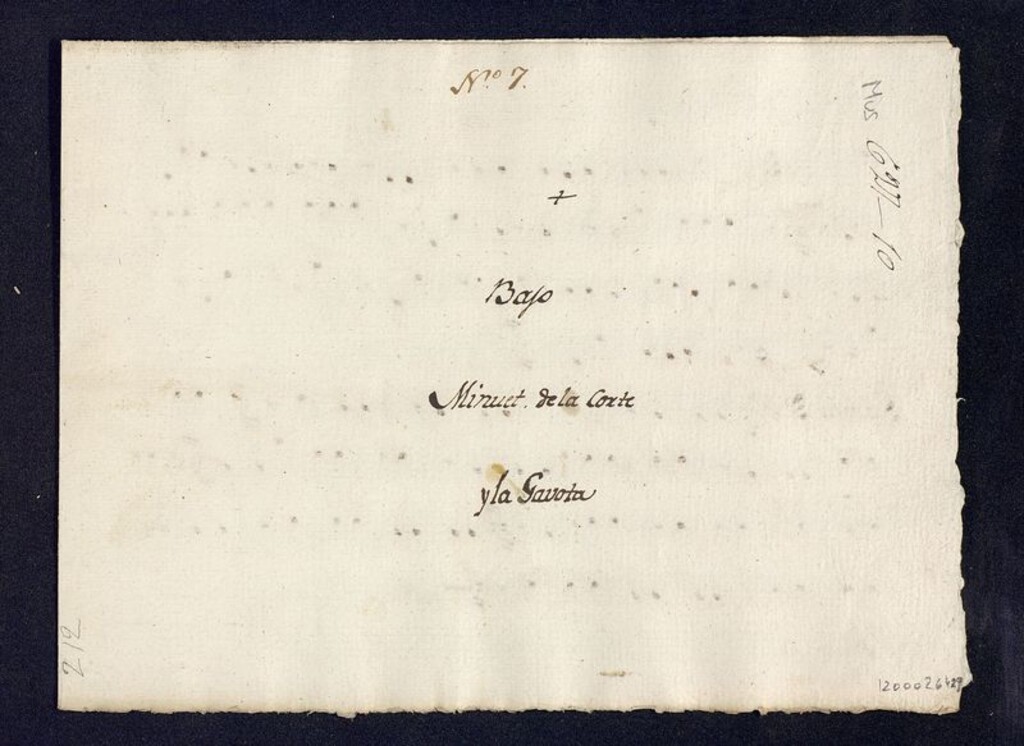 Nro 7.
Mus 627-10
+
Bajo
Minuet. de la Corte
y la Gavota
212
1200026429